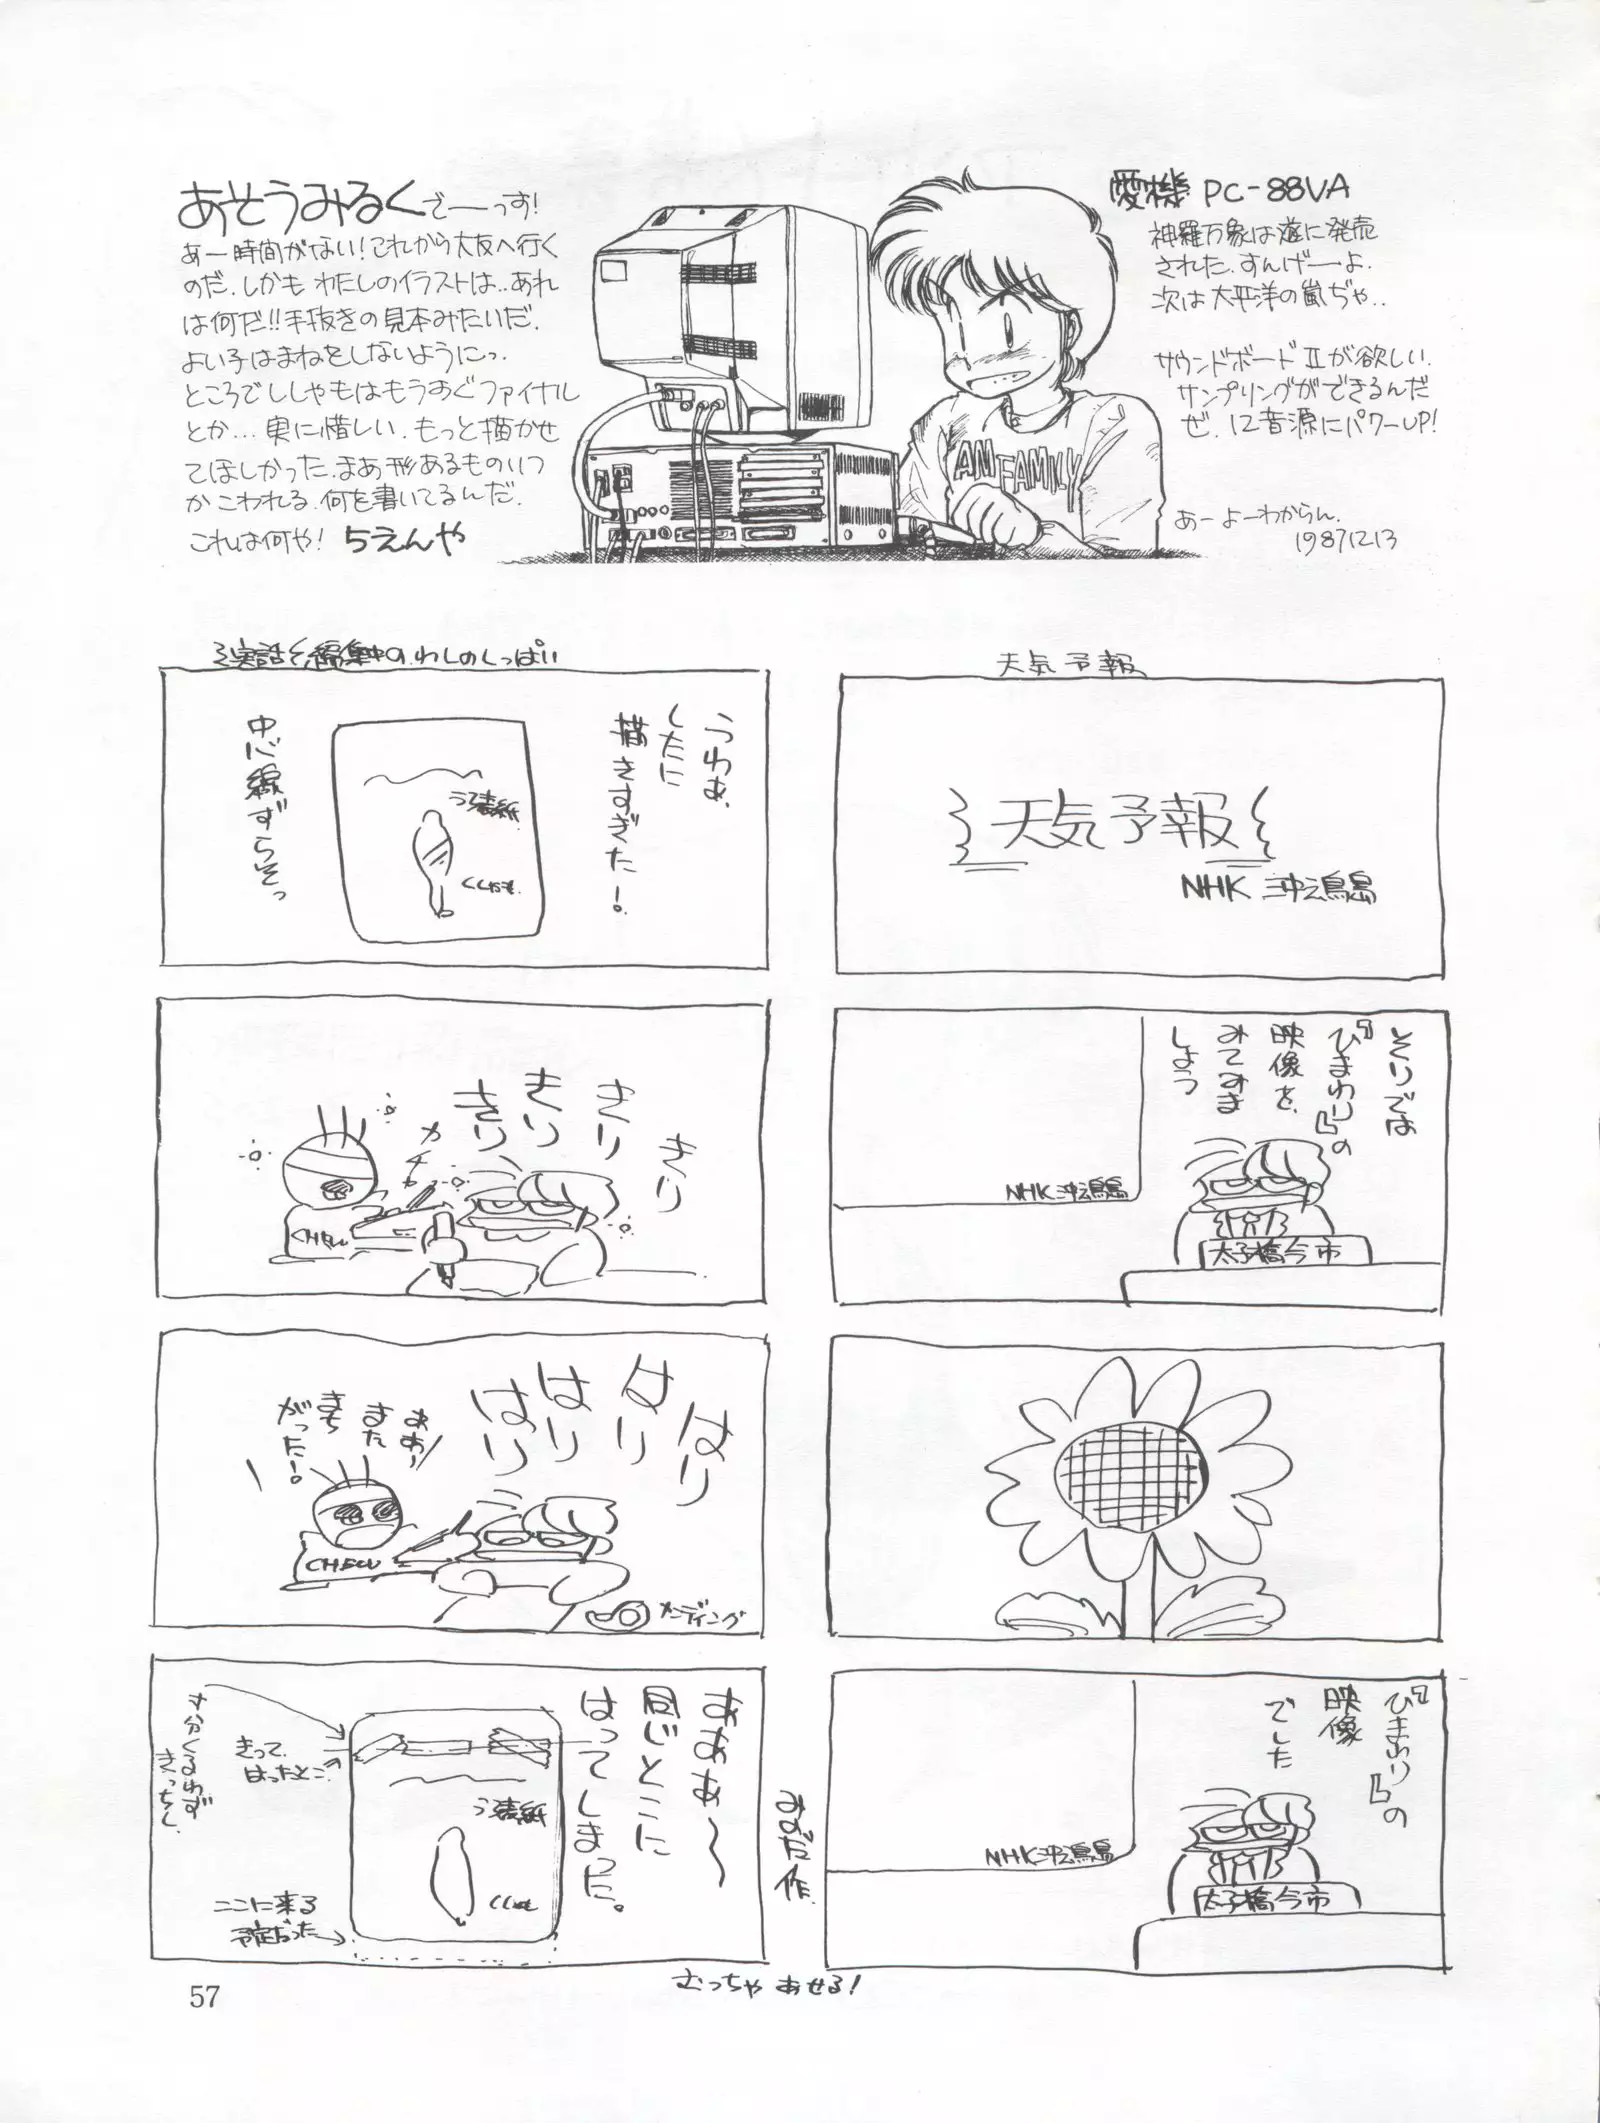 あそうみるくでーっす!
あー時間がない!これから大友へ行く
のだ.しかも わたしのイラストは..あれ
は何だ!!手抜きの見本みたいだ.
よい子はまねをしないようにっ.
ところでししゃもはもうすぐファイナル
とか...実に惜しい.もっと描かせ
てほしかった.まあ形あるものいつ
かこわれる.何を書いてるんだ.
これは何や! ちえんや
愛機 PC-88VA
神羅万象は遂に発売
された.すんげーよ.
次は太平洋の嵐ぢゃ..
サウンドボードⅡが欲しい.
サンプリングができるんだ
ぜ.12音源にパワーUP!
あーよーわからん.
19871213
AM FAMILY
天気予報
天気予報
NHK 沖ノ鳥島
それでは
『ひまわり』の
映像を、
みてみま
しょう
NHK沖ノ鳥島
太子橋今市
『ひまわり』の
映像
でした
NHK沖ノ鳥島
太子橋今市
実話 編集中の.わしのしっぱい
うわぁ、
したに
描きすぎた!
中心線ずらそっ
うら表紙
ししゃも
きり
きり
きり
きり
カチャ
はり
はり
はり
はり
ああ〜
また
まち
がった!
CHECK
メンディング
あああ〜
同じとこに
はってしまった。
寸分くるわず
きっちし
きって
はったとこ
うら表紙
ししゃも
ここに来る
予定だった
まずだ作
むっちゃ あせる!
57